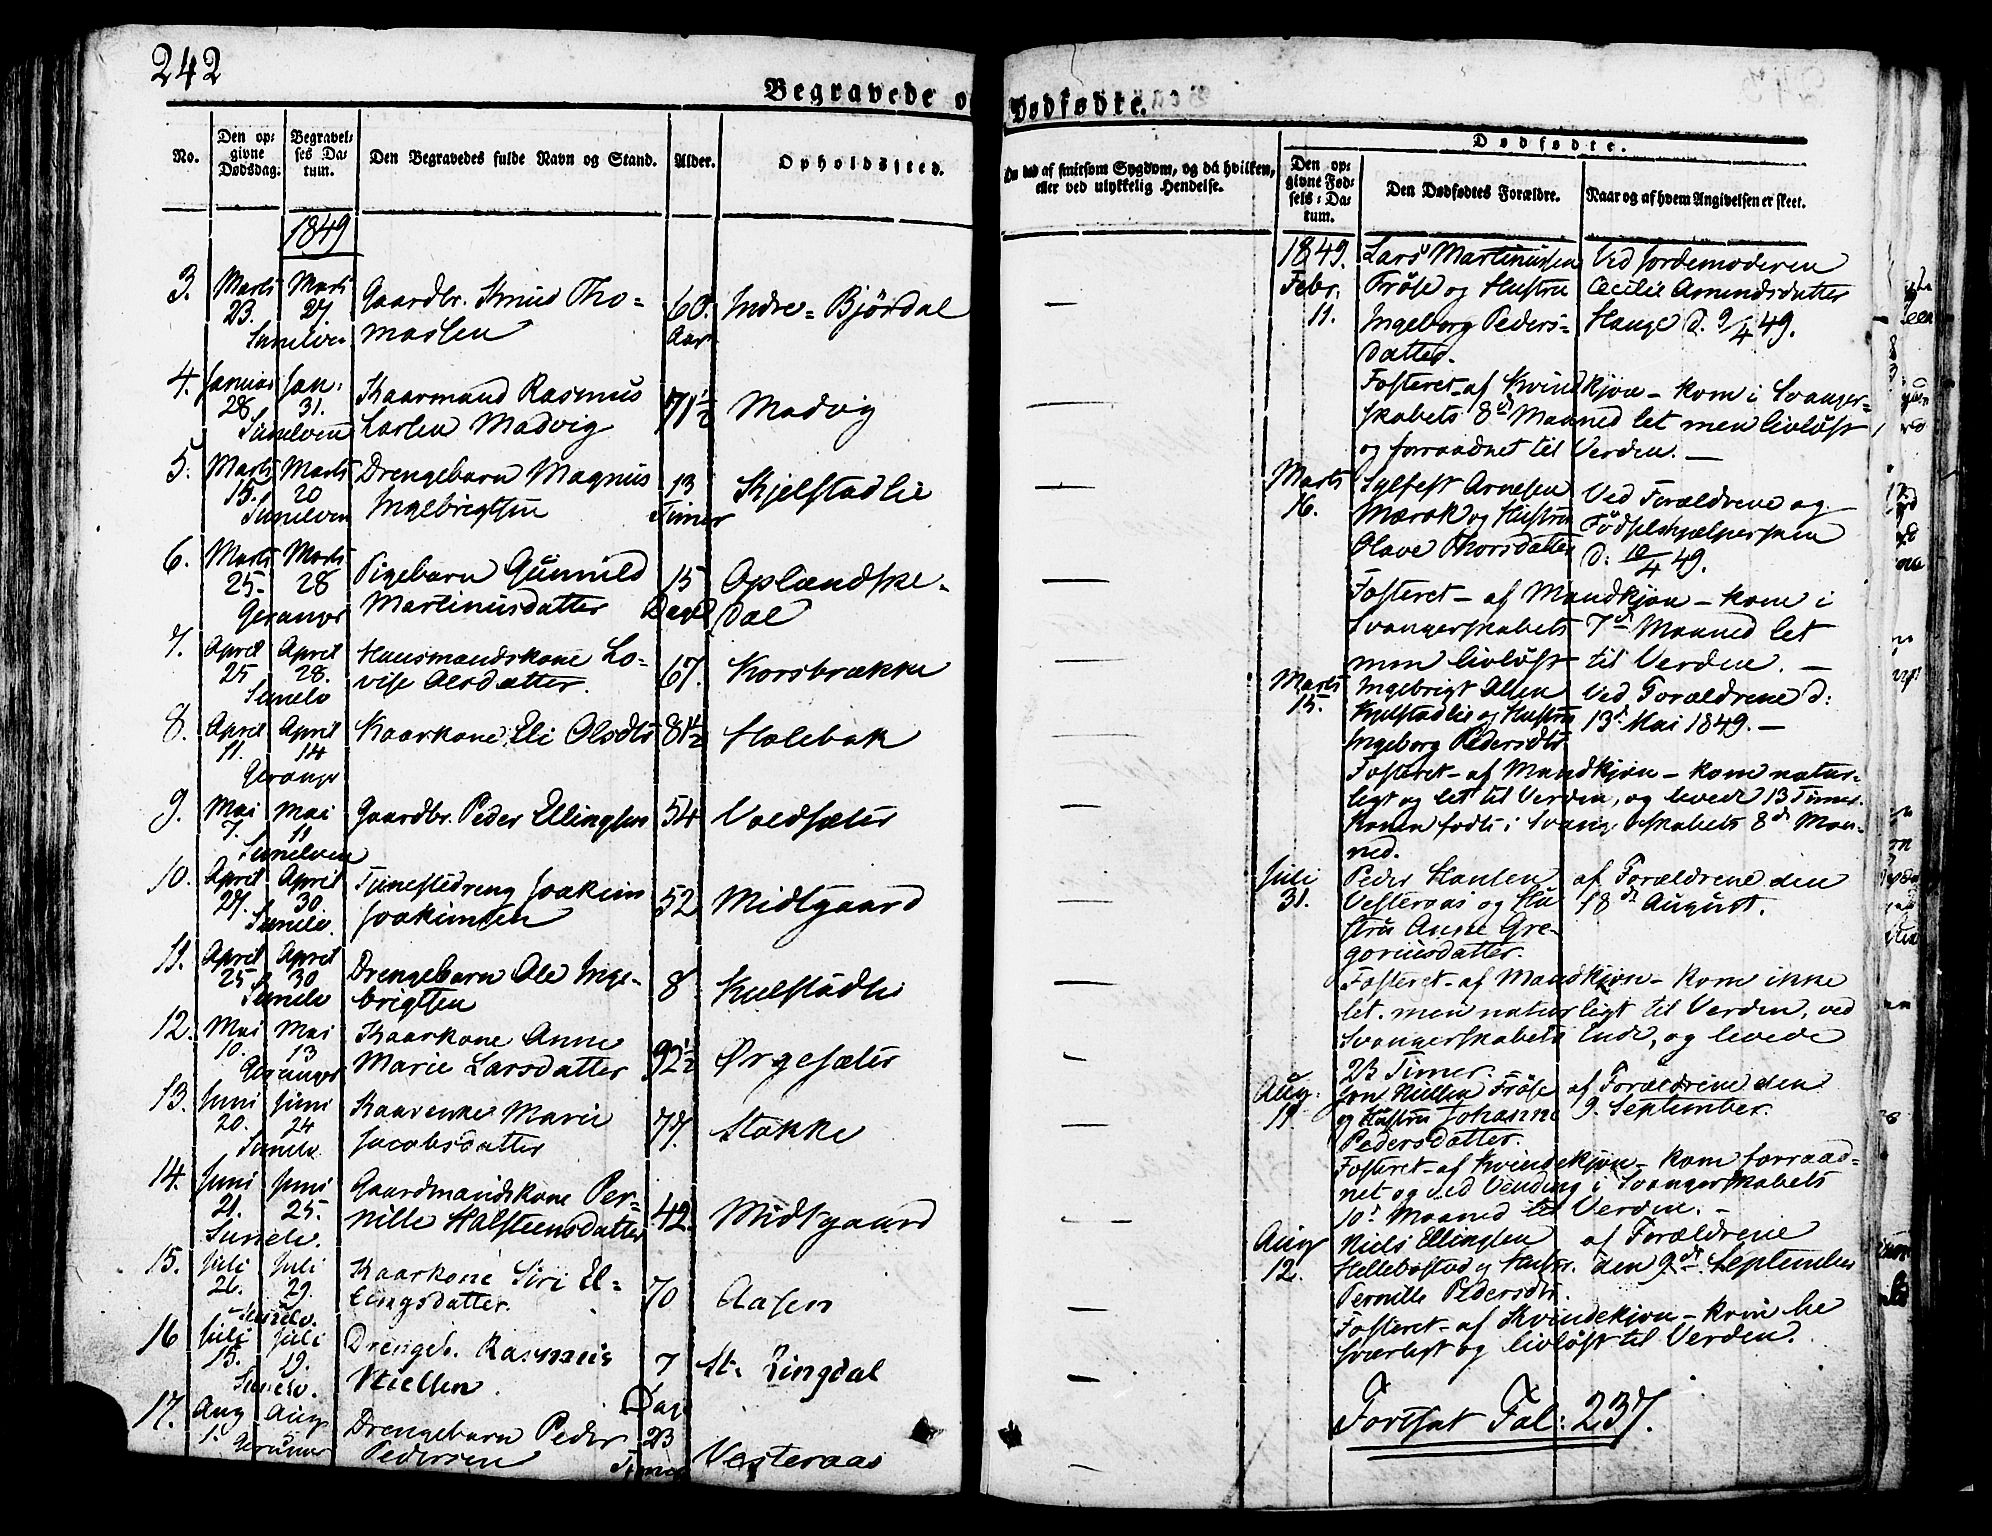 242
Begravede o
No.
Den op-
givne
Dødsdag.
Begravel-
ses Da-
tum.
Den Begravedes fulde Navn og Stand.
Alder.
Opholdssted.
1849
3. Marts Marts Gaardbr. Knud Tho- 60. Indre-Bjørdal
23. 27 massen Aar
Sunelven
4. Januar Jan: Kaarmand Rasmus 71½ Madvig
28. 31. Larsen Madvig
Sunelven
5. Marts Marts Drengebarn Magnus 13 Kjelstadlie
15. 20 Ingebrigtsen Timer
Sunelven
6. Marts Marts Pigebarn Gunnild 15 Oplændske-
25. 28 Martinusdatter Dage dal
Geranger
7. April April Huusmandskone Lo- 67. Korsbrække
25 28. vise Olsdatter.
Sunelv
8. April April Kaarkone Eli Olsdtr 81½ Holebak
11. 14
Geranger
9. Mai Mai Gaardbr. Peder Ellingsen 54 Voldsæter
7. 11
Sunelven
10. April April Tjenestedreng Joakim 52 Midtgaard
27. 30. Joakimsen
Sunelv.
11. April April Drengebarn Ole Inge- 8 Kjelstadli
25 30 brigtsen
Sunelv
12. Mai Mai Kaarkone Anne 92½ Ørgesæter
10. 13 Marie Larsdatter
Geranger
13. Juni Juni Kaarenke Marie 77. Stokke
20. 24 Jacobsdatter
Sunelv.
14. Juni Juni Gaardmandskone Per- 42. Midtgaard
21. 25. nille Halsteensdatter
Sunelv.
15. Juli Juli Kaarkone Siri El- 70 Aasen
26. 29. lingsdatter.
Sunelv.
16 Juli Juli Drengeb. Rasmus 7 St. Ringdal
15. 19. Nielsen. Dage
Sunelv.
17. Aug Aug Drengebarn Peder 23 Vesteraas
1. 5 Pedersen Timer
Geranger
Dødfødte.
Om død af smitsom Sygdom, og da hvilken,
eller ved ulykkelig Hendelse.
Dødfødte.
Den op-
givne Fød-
sels-Da-
tum.
Den Dødfødtes Forældre.
Naar og af hvem Angivelsen er skeet.
1849. Lars Martinussen Ved Jordemoderen
Febr. Frøse og Hustru Cecilie Amundsdatter
11. Ingeborg Peders- Hauge d. 9/4 49.
datter.
Fosteret - af Kvindkjøn - kom i Svanger-
skabets 8de Maaned let men livløst
og forraadnet til Verden. -
Marts Sylfest Arnesen Ved Forældrene og
16. Mærok og Hustru Fødselshjælpersken
Olave Thorsdatter d: 10/4 49.
Fosteret - af Mandkjøn - kom i
Svangerskabets 7de Maaned let
men livløst til Verden. -
Marts Ingebrigt Olsen Ved Forældrene d:
15. Kjelstadlie og Hustru 13de Mai 1849. -
Ingeborg Pedersdtr
Fosteret - af Mandkjøn - kom natur-
ligt og let til Verden, og levede 13 Timer.
Konen fødte i Svangerskabets 8de Maa-
ned.
Juli Peder Hansen af Forældrene den
31. Vesteraas og Hu- 18de August.
stru Anne Gre-
goriusdatter.
Fosteret - af Mandkjøn - kom ikke
let, men naturligt til Verden, ved
Svangerskabets Ende, og levede
23 Timer.
Aug. Jon Nielsen Frøse af Forældrene den
11. og Hustru Johanne 9. September.
Pedersdatter.
Fosteret - af Kvindekjøn - kom forraad-
net og ved Vending i Svangerskabets
10de Maaned til Verden. -
Aug Niels Ellingsen af Forældrene
12. Hellebostad og Hustr. den 9de September
Pernille Pedersdtr.
Fosteret - af Kvindekjøn - kom be
sværligt og livløst til Verden.
Fortsat Fol: 237.